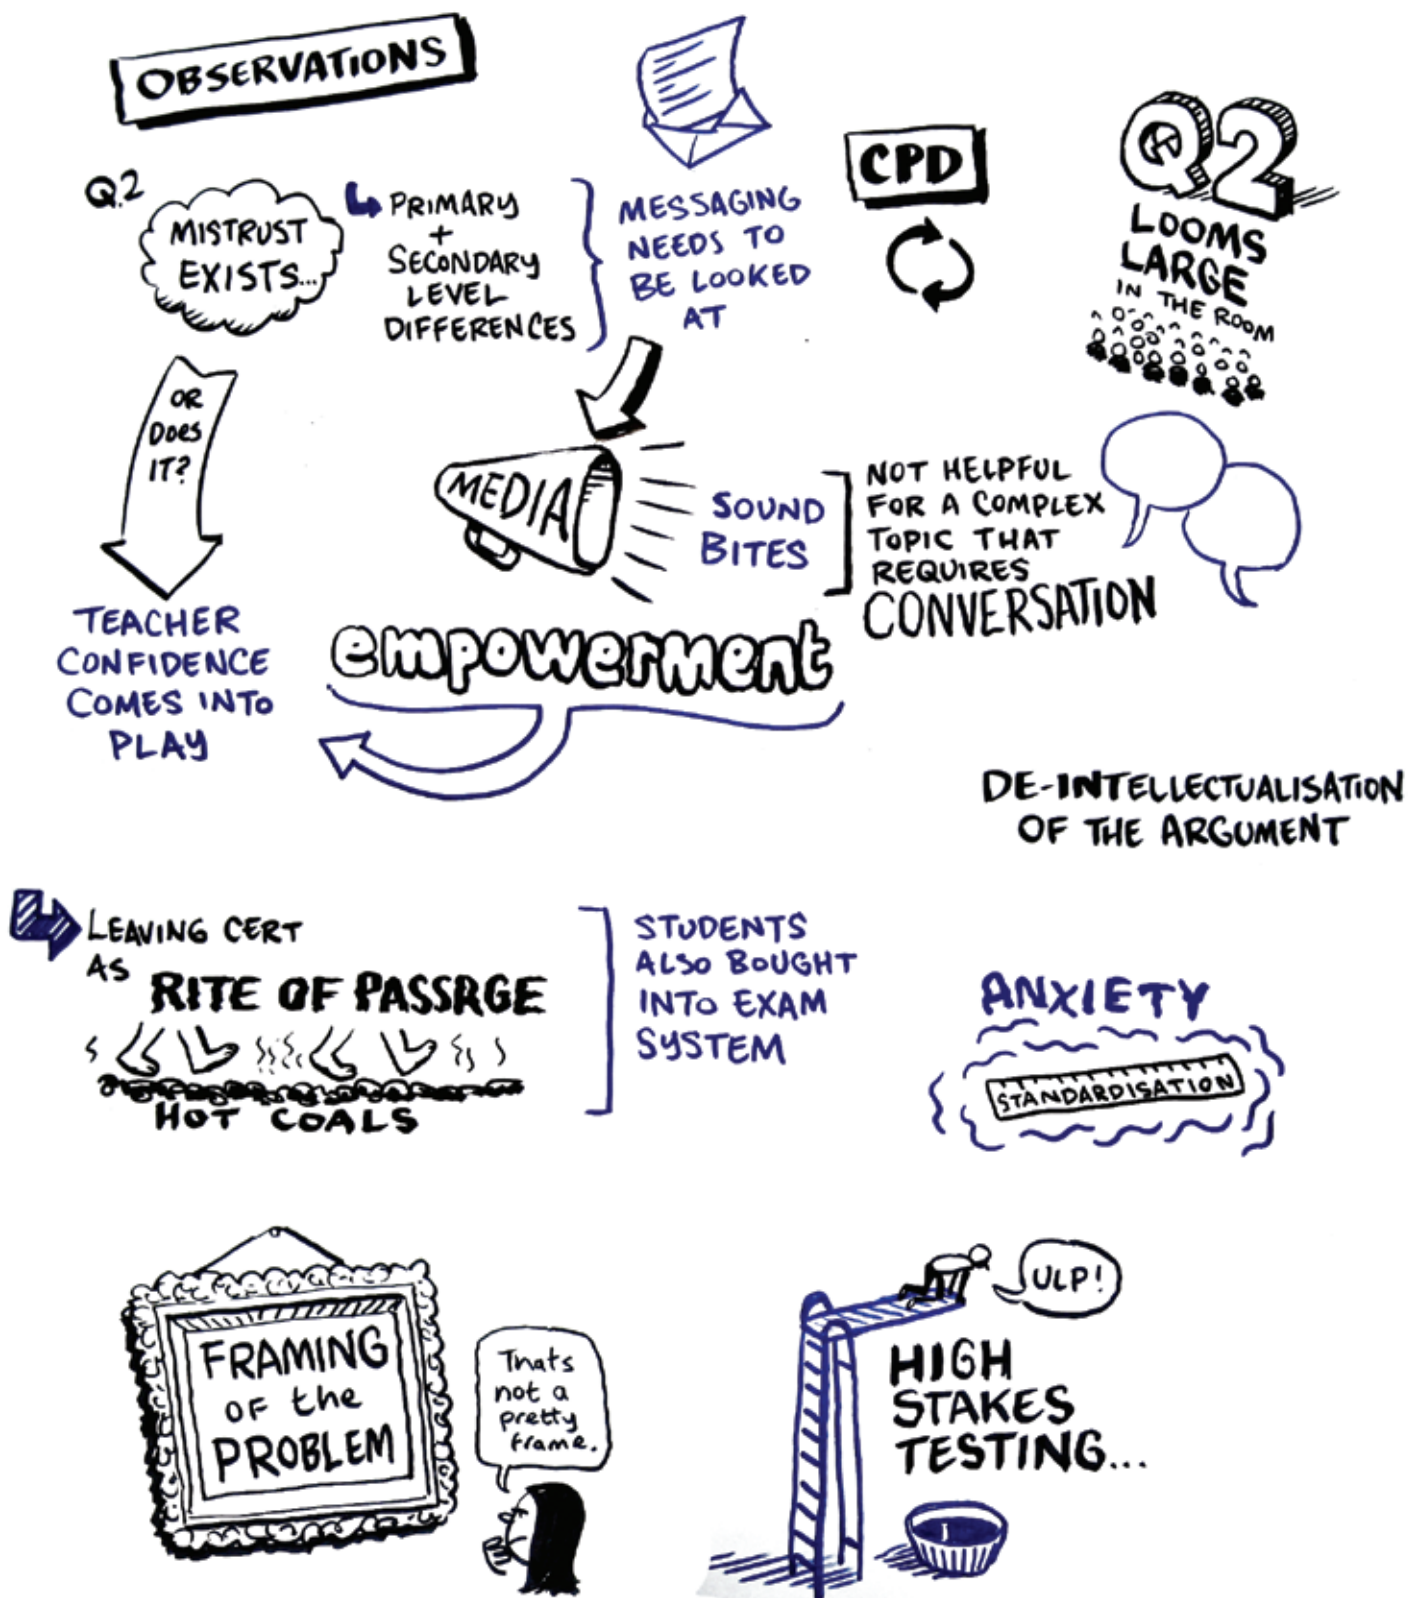 OBSERVATIONS
Q.2
MISTRUST
EXISTS...
PRIMARY
+
SECONDARY
LEVEL
DIFFERENCES
MESSAGING
NEEDS TO
BE LOOKED
AT
CPD
Q2
LOOMS
LARGE
IN THE ROOM
OR
DOES
IT?
TEACHER
CONFIDENCE
COMES INTO
PLAY
MEDIA
SOUND
BITES
NOT HELPFUL
FOR A COMPLEX
TOPIC THAT
REQUIRES
CONVERSATION
empowerment
DE-INTELLECTUALISATION
OF THE ARGUMENT
LEAVING CERT
AS
RITE OF PASSRGE
HOT COALS
STUDENTS
ALSO BOUGHT
INTO EXAM
SYSTEM
ANXIETY
STANDARDISATION
FRAMING
OF the
PROBLEM
Thats
not a
pretty
frame.
ULP!
HIGH
STAKES
TESTING...